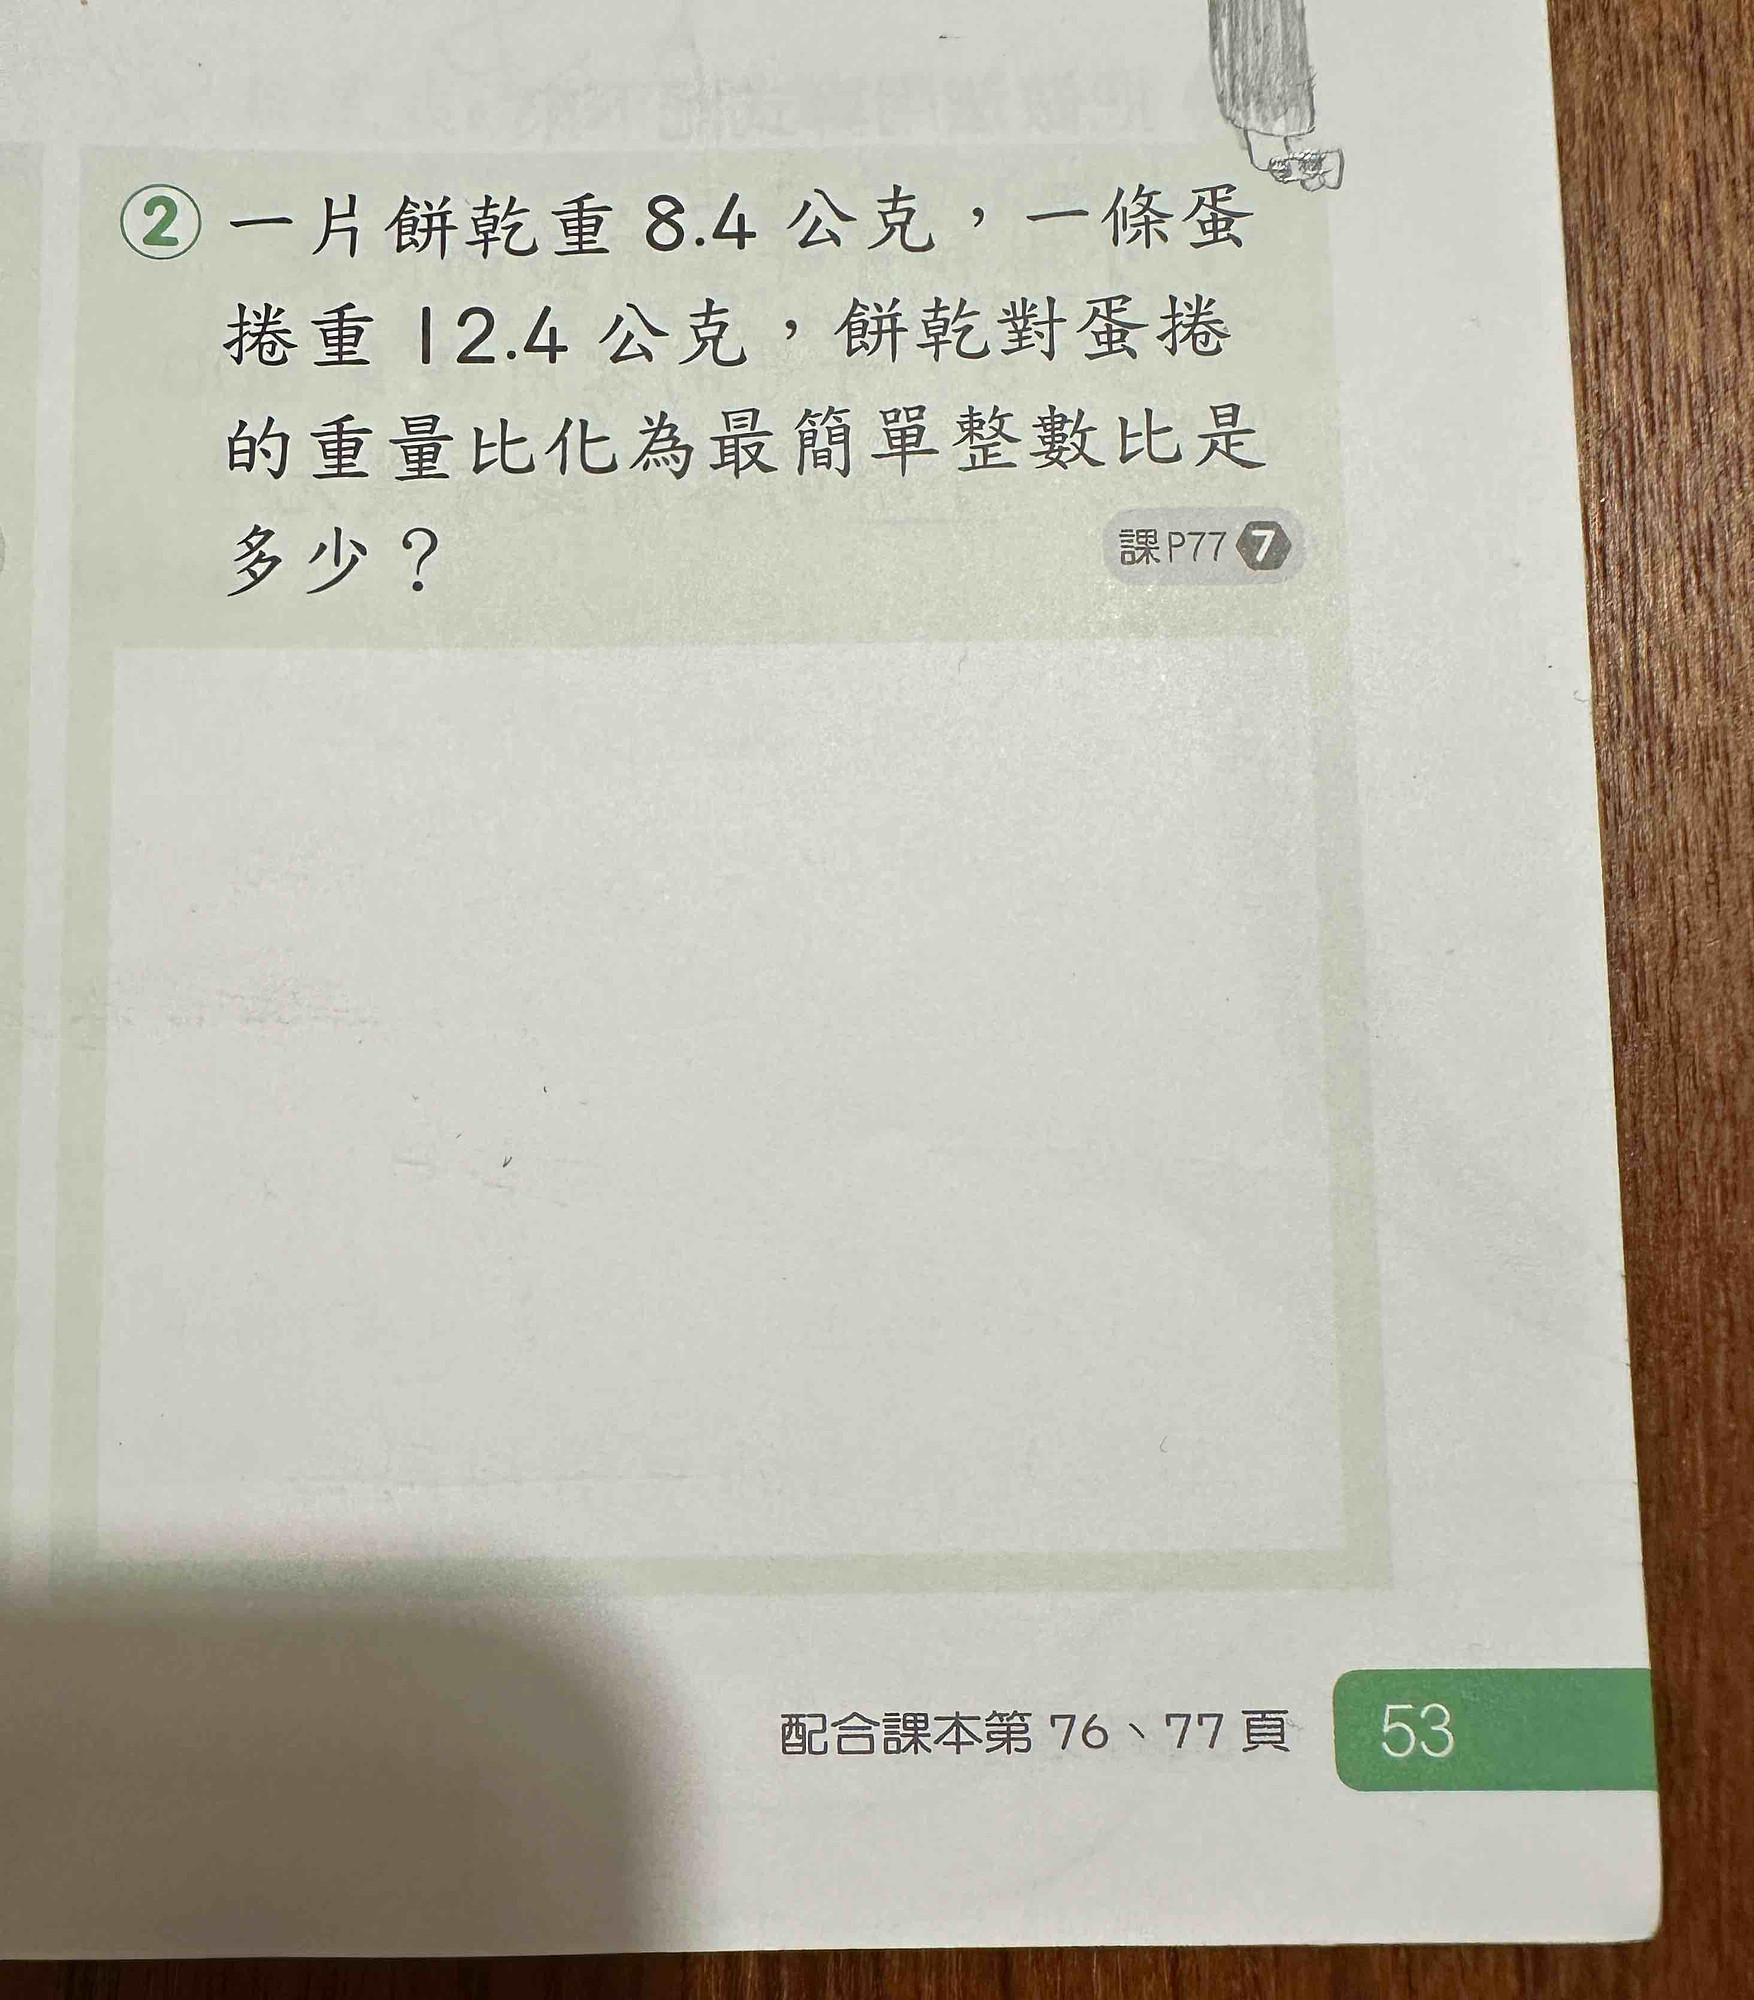 ② 一片餅乾重 8.4 公克，一條蛋
捲重 12.4 公克，餅乾對蛋捲
的重量比化為最簡單整數比是
多少？
課P77 7
配合課本第 76、77 頁
53